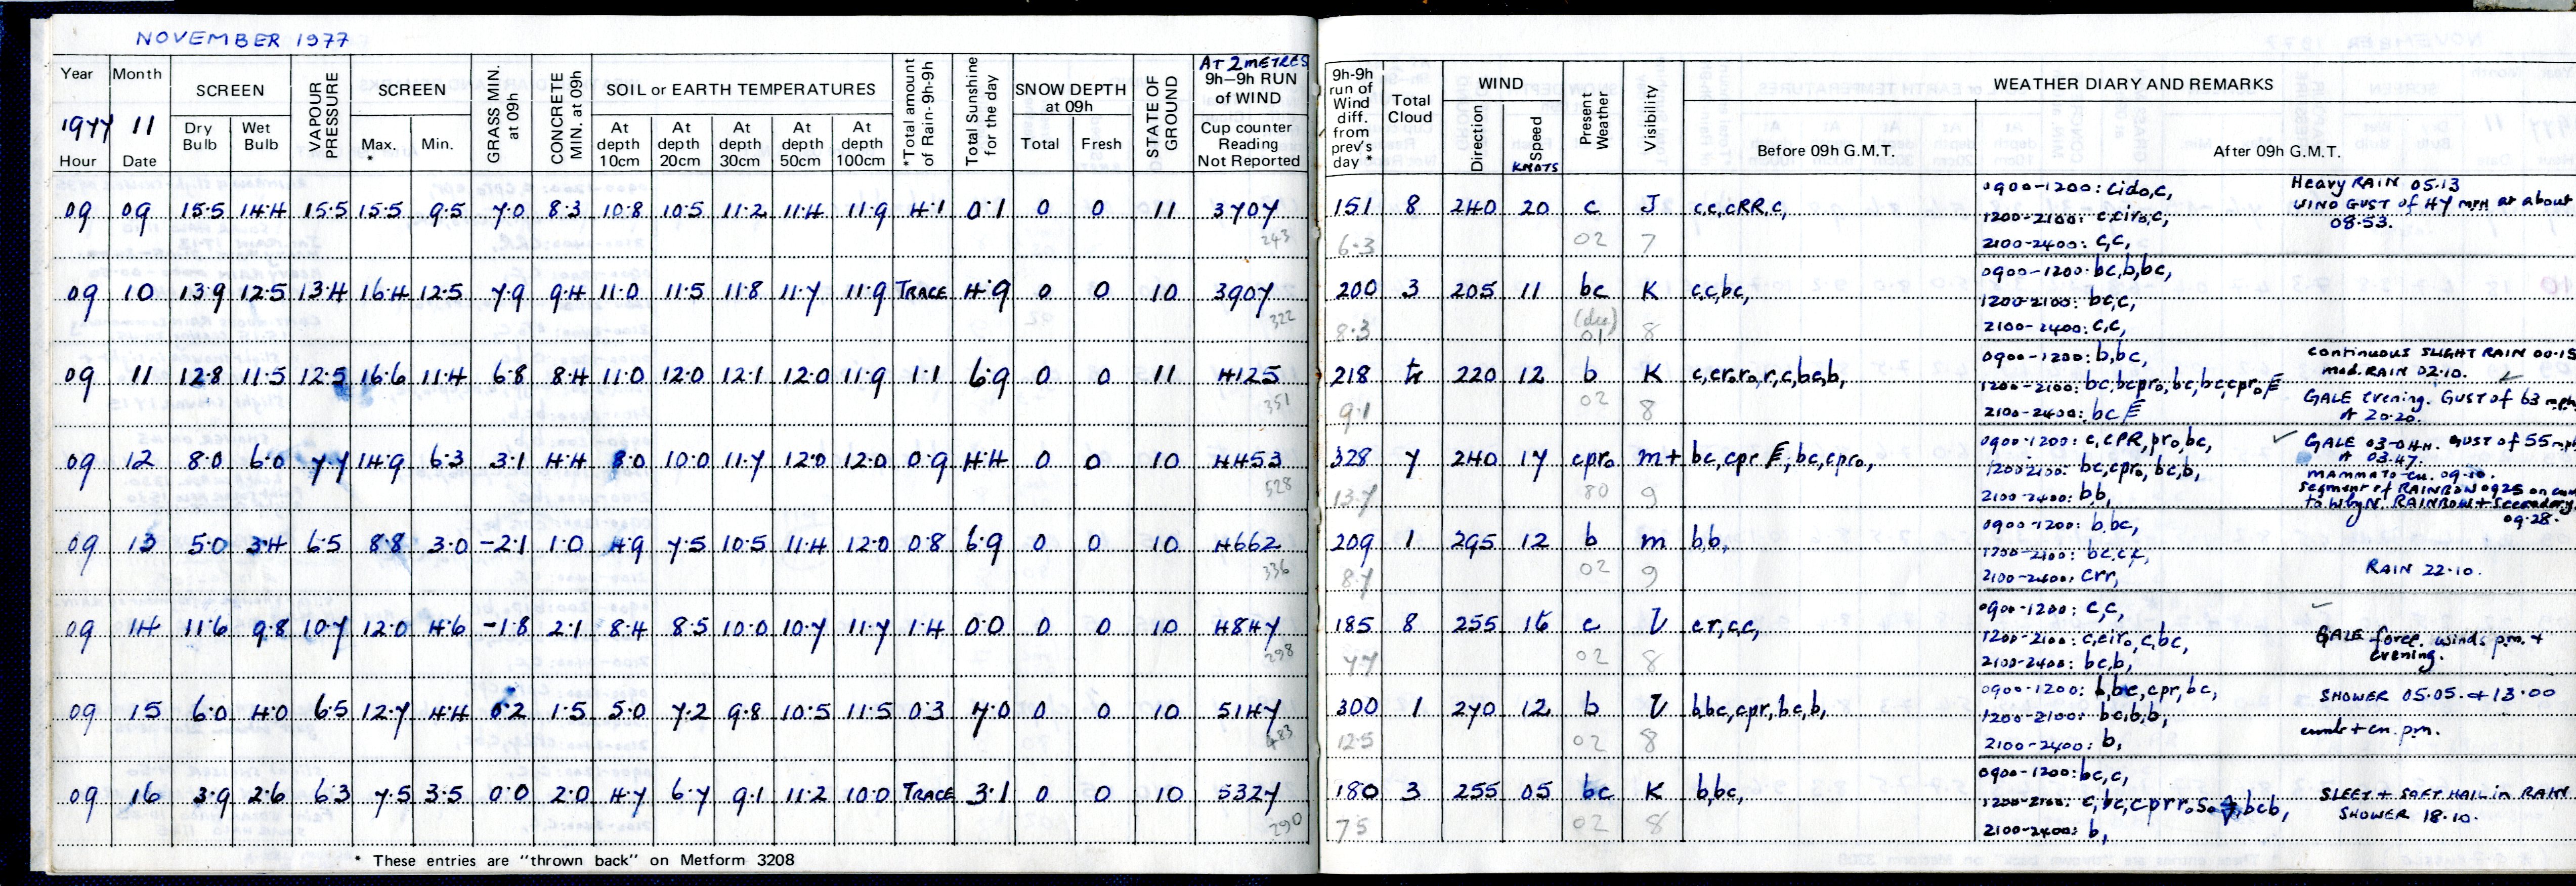 NOVEMBER 1977
Year Month SCREEN VAPOUR PRESSURE SCREEN GRASS MIN. at 09h CONCRETE MIN. at 09h SOIL or EARTH TEMPERATURES *Total amount of Rain-9h-9h Total Sunshine for the day SNOW DEPTH at 09h STATE OF GROUND AT 2 METRES 9h-9h RUN of WIND 9h-9h run of Wind diff. from prev's day * Total Cloud WIND Present Weather Visibility WEATHER DIARY AND REMARKS
1977 11
Hour Date Dry Bulb Wet Bulb Max. * Min. At depth 10cm At depth 20cm At depth 30cm At depth 50cm At depth 100cm Total Fresh Cup counter Reading Not Reported Direction Speed KNOTS Before 09h G.M.T. After 09h G.M.T.
09 09 15.5 14.4 15.5 15.5 9.5 7.0 8.3 10.8 10.5 11.2 11.4 11.9 4.1 0.1 0 0 11 3707 151 8 240 20 c J c,c,cRR,c, 0900-1200: cido,c, Heavy RAIN 05.13
WIND GUST of 47 MPH at about
1200-2100: c,ciro,c, 08.53.
243 6.3 02 7 2100-2400: c,c,
09 10 13.9 12.5 13.4 16.4 12.5 7.9 9.4 11.0 11.5 11.8 11.7 11.9 TRACE 4.9 0 0 10 3907 200 3 205 11 bc K c,c,bc, 0900-1200: bc,b,bc,
1200-2100: bc,c,
322 8.3 01 8 2100-2400: c,c,
09 11 12.8 11.5 12.5 16.6 11.4 6.8 8.4 11.0 12.0 12.1 12.0 11.9 1.1 6.9 0 0 11 4125 218 220 12 b K c,croro,r,c,bc,b, 0900-1200: b,bc, continuous SLIGHT RAIN 00.15
mod. RAIN 02.10.
1200-2100: bc,bcpro,bc,bc,cpro, GALE Evening. GUST of 63 mph
351 9.1 02 8 2100-2400: bc At 20.20.
09 12 8.0 6.0 7.7 14.9 6.3 3.1 4.4 8.0 10.0 11.7 12.0 12.0 0.9 4.4 0 0 10 4453 328 7 240 17 cpro m+ bc,cpr, bc,cpro, 0900-1200: c,cPR,pro,bc, GALE 03-04H. GUST of 55 mph
At 03.47.
1200-2100: bc,cpro,bc,b, MAMMATO-Cu. 09.10.
528 13.7 80 9 2100-2400: b,b, Segment of RAINBOW 0925 on
to WbyN. RAINBOW + Secondary
09.28.
09 13 5.0 3.4 6.5 8.8 3.0 -2.1 1.0 4.9 7.5 10.5 11.4 12.0 0.8 6.9 0 0 10 4662 209 1 295 12 b m b,b, 0900-1200: b,bc,
1200-2100: bc,c,
336 8.7 02 9 2100-2400: crr, RAIN 22.10.
09 14 11.6 9.8 10.7 12.0 4.6 -1.8 2.1 8.4 8.5 10.0 10.7 11.7 1.4 0.0 0 0 10 4847 185 8 255 16 c l cr,c,c, 0900-1200: c,c,
1200-2100: c,ciro,c,bc, GALE force. winds p.m. +
298 7.7 02 8 2100-2400: bc,b, Evening.
09 15 6.0 4.0 6.5 12.7 4.4 0.2 1.5 5.0 7.2 9.8 10.5 11.5 0.3 7.0 0 0 10 5147 300 1 270 12 b l b,bc,cpr,bc,b, 0900-1200: b,bc,cpr,bc, SHOWER 05.05. + 13.00
1200-2100: bc,b,b, cumb + cu. p.m.
483 12.5 02 8 2100-2400: b,
09 16 3.9 2.6 6.3 7.5 3.5 0.0 2.0 4.7 6.7 9.1 11.2 10.0 TRACE 3.1 0 0 10 5327 180 3 255 05 bc K b,bc, 0900-1200: bc,c,
1200-2100: c,bc,cprroso bcb, SLEET + SOFT HAIL in RAIN
SHOWER 18.10.
290 75 02 8 2100-2400: b,
* These entries are "thrown back" on Metform 3208